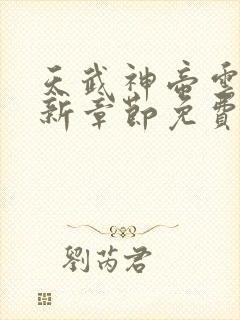 天武神帝雲
新章節免費
劉芮君